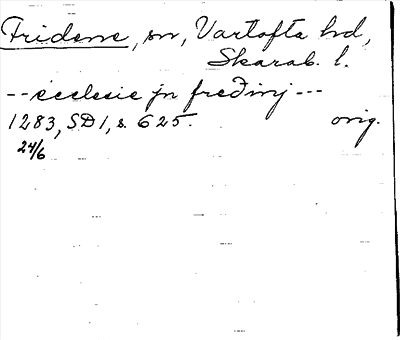 Fridene, sn, Vartofta hd,
Skarab. l.
--ecclesie jn freðinj---
1283, SD 1, s. 625. orig.
24/6